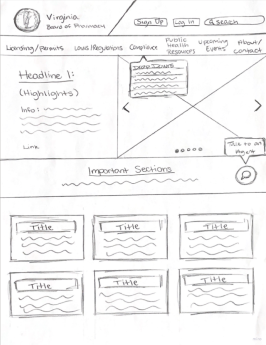 Virginia
Board of Pharmacy
Sign Up
Log In
Search
Licensing/Permits
Laws/Regulations
Compliance
Public
Health
Resources
Upcoming
Events
About/
Contact
Headline 1:
(Highlights)
Info:
Link
Important Sections
Title
Title
Title
Title
Title
Title